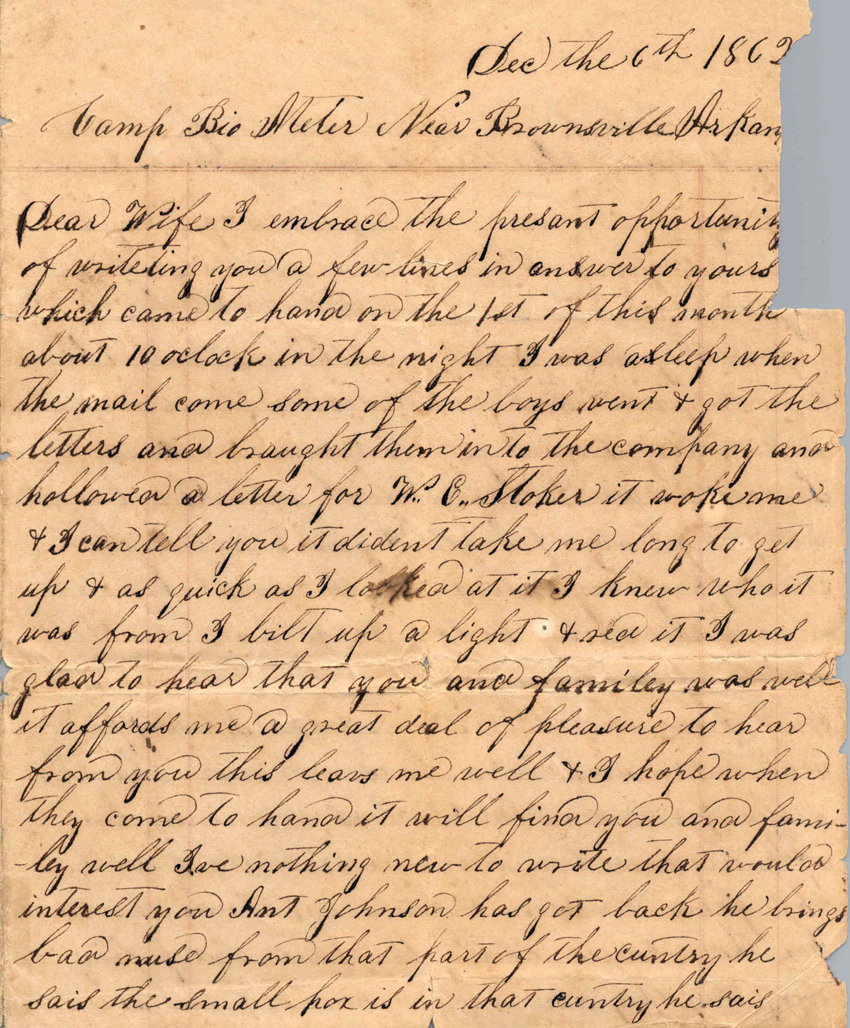 Dec the 6th 1862
Camp Bio Meter Near Brownsville Arkan
Dear Wife I embrace the presant opportunity
of writeting you a few lines in answer to yours
which came to hand on the 1st of this month
about 10 oclock in the night I was asleep when
the mail come some of the boys went & got the
letters and braught them in to the company and
hollowed a letter for W. E. Stoker it woke me
& I can tell you it dident take me long to get
up & as quick as I looked at it I knew who it
was from I bilt up a light & red it I was
glad to hear that you and familey was well
it affords me a great deal of pleasure to hear
from you this leavs me well & I hope when
they come to hand it will find you and fami-
-ley well Ive nothing new to write that would
interest you Ant Johnson has got back he brings
bad nuse from that part of the cuntry he
sais the small pox is in that cuntry he sais